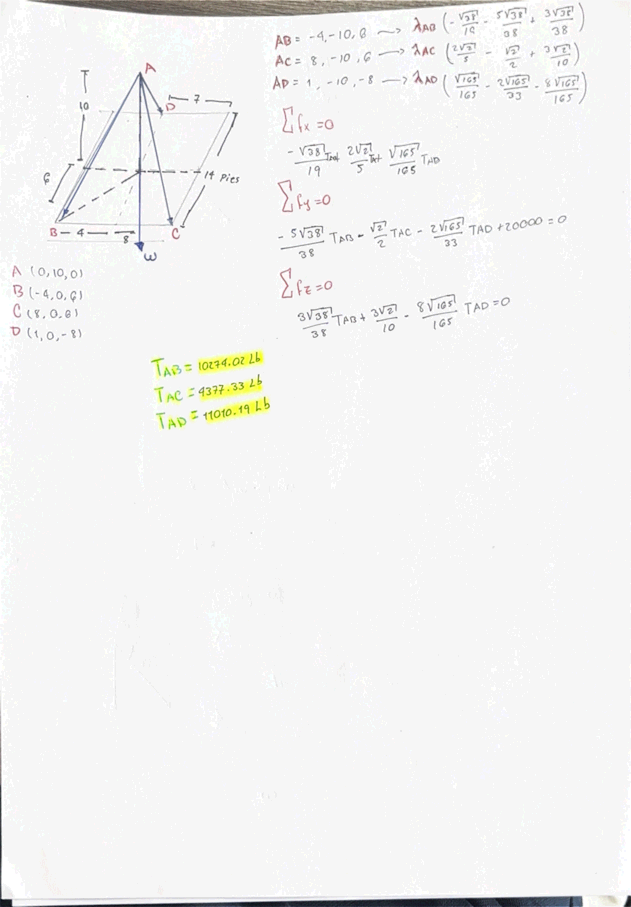 AB = -4, -10, 6 → λAB (-√38/19 - 5√38/38 + 3√38/38)
AC = 8, -10, 6 → λAC (2√2/5 - √2/2 + 3√2/10)
AD = 1, -10, -8 → λAD (√165/165 - 2√165/33 - 8√165/165)
A
D
7
10
6
14 Pies
B
4
8
C
W
A (0,10,0)
B (-4,0,6)
C (8,0,6)
D (1,0,-8)
∑fx=0
-√38/19 TAB + 2√2/5 TAC + √165/165 TAD
∑fy=0
-5√38/38 TAB - √2/2 TAC - 2√165/33 TAD +20000=0
∑fz=0
3√38/38 TAB + 3√2/10 - 8√165/165 TAD=0
TAB = 10274.02 Lb
TAC = 4377.33 Lb
TAD = 11010.19 Lb